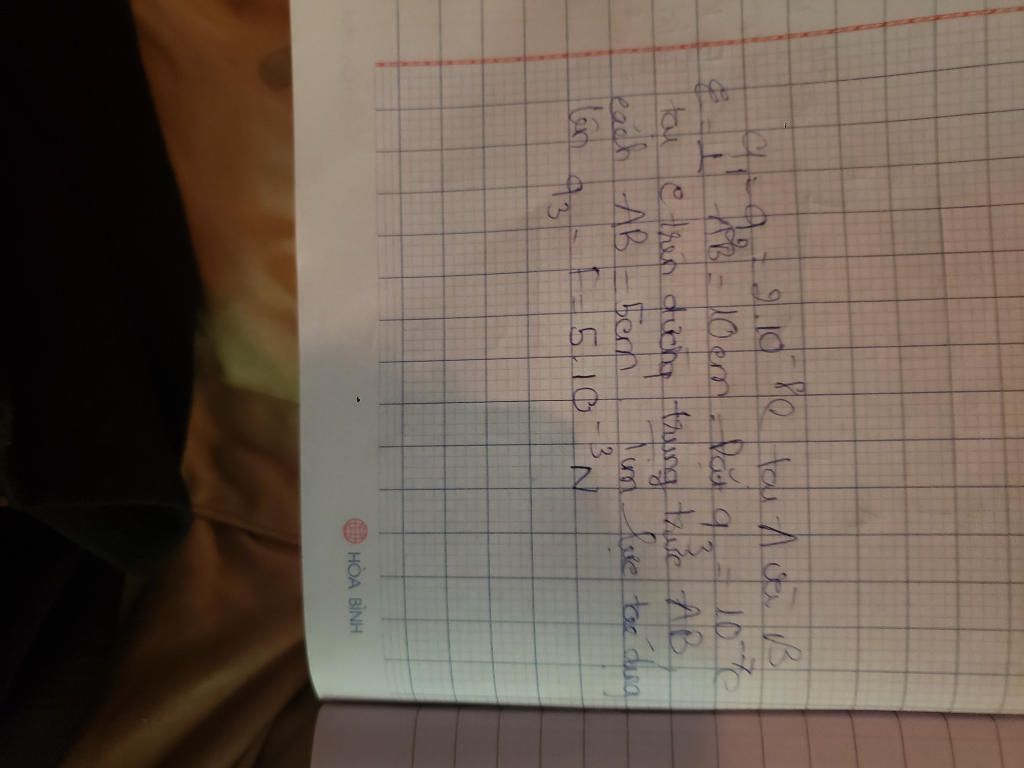 q1 = q2 = 2.10^-8C tại A và B
ε = 1 AB = 10cm. Đặt q3 = 10^-7C
tại C trên đường trung trực AB
cách AB = 5cm Tìm lực tác dụng
lên q3 = F = 5.10^-3 N
HÒA BÌNH